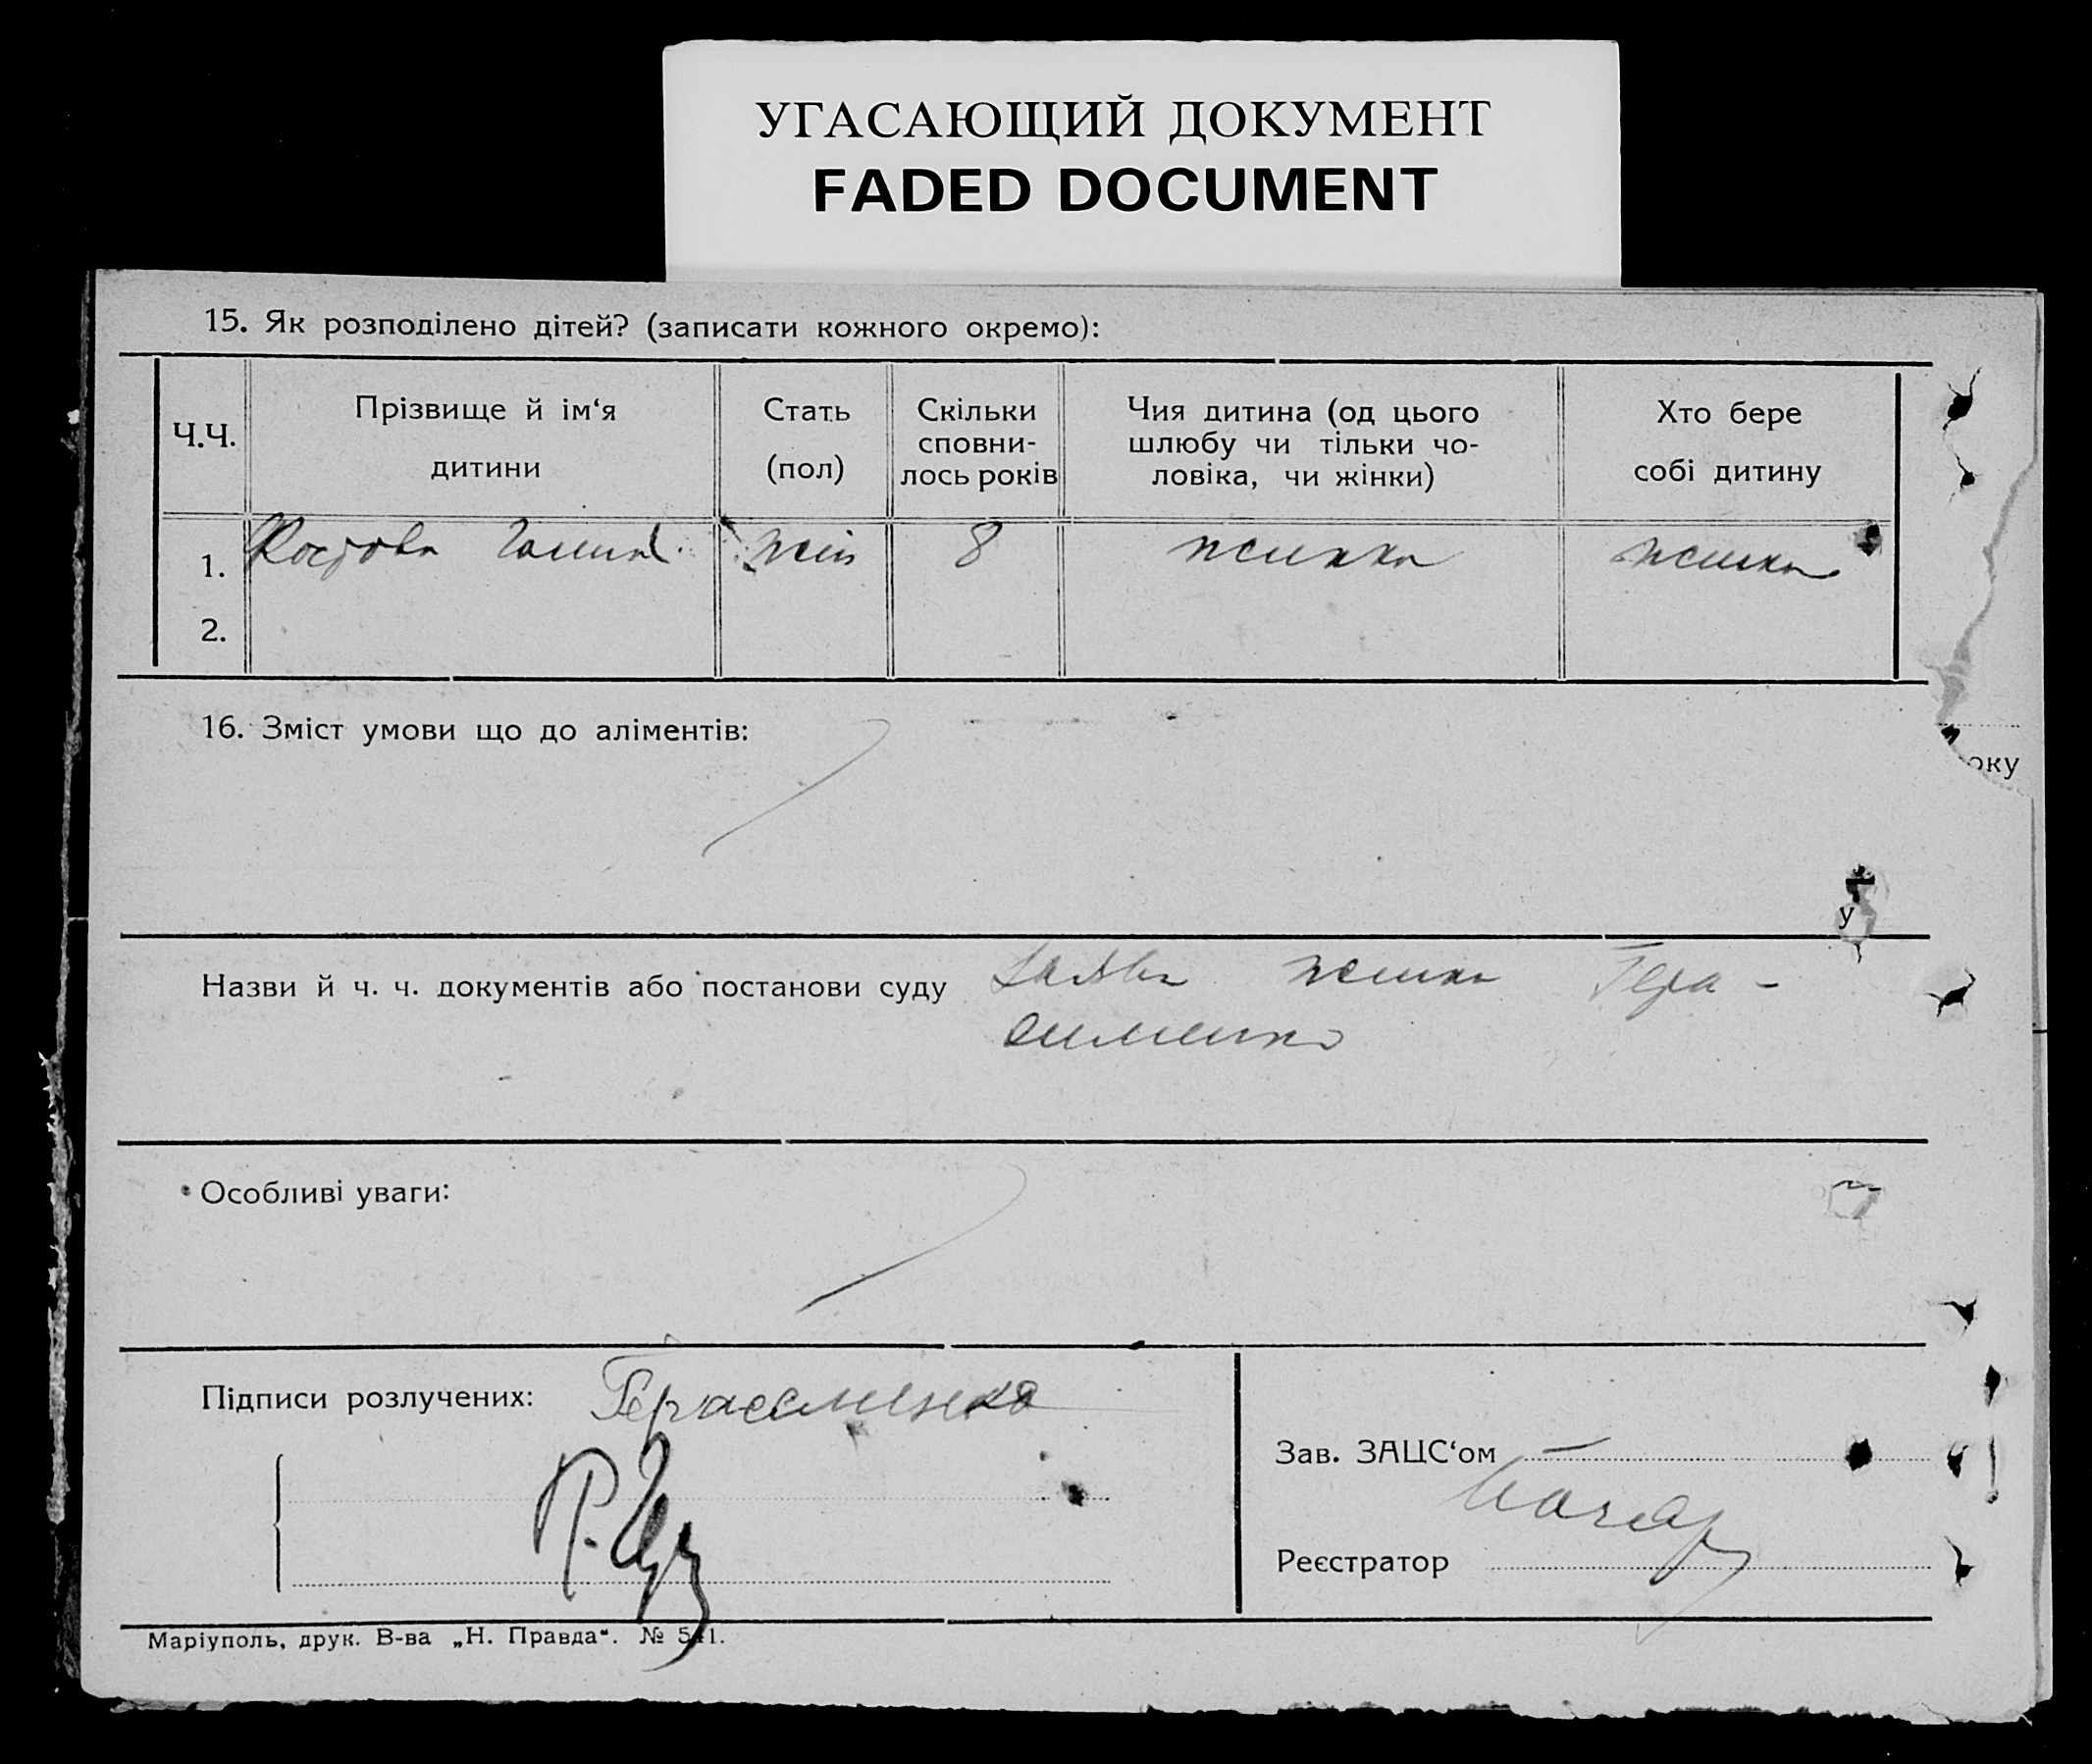 УГАСАЮЩИЙ ДОКУМЕНТ
FADED DOCUMENT
15. Як розподілено дітей? (записати кожного окремо):
Ч.Ч.
Прізвище й ім‘я
дитини
Стать
(пол)
Скільки
сповни-
лось років
Чия дитина (од цього
шлюбу чи тільки чо-
ловіка, чи жінки)
Хто бере
собі дитину
1. Галина жін 8 жинка жинка
2.
16. Зміст умови що до аліментів:
оку
у
Назви й ч. ч. документів або постанови суду Заява жинки Гера-
сименко
Особливі уваги:
Підписи розлучених: Герасименко
Зав. ЗАЦС‘ом
Реєстратор
Маріуполь, друк. В-ва „Н. Правда“. №